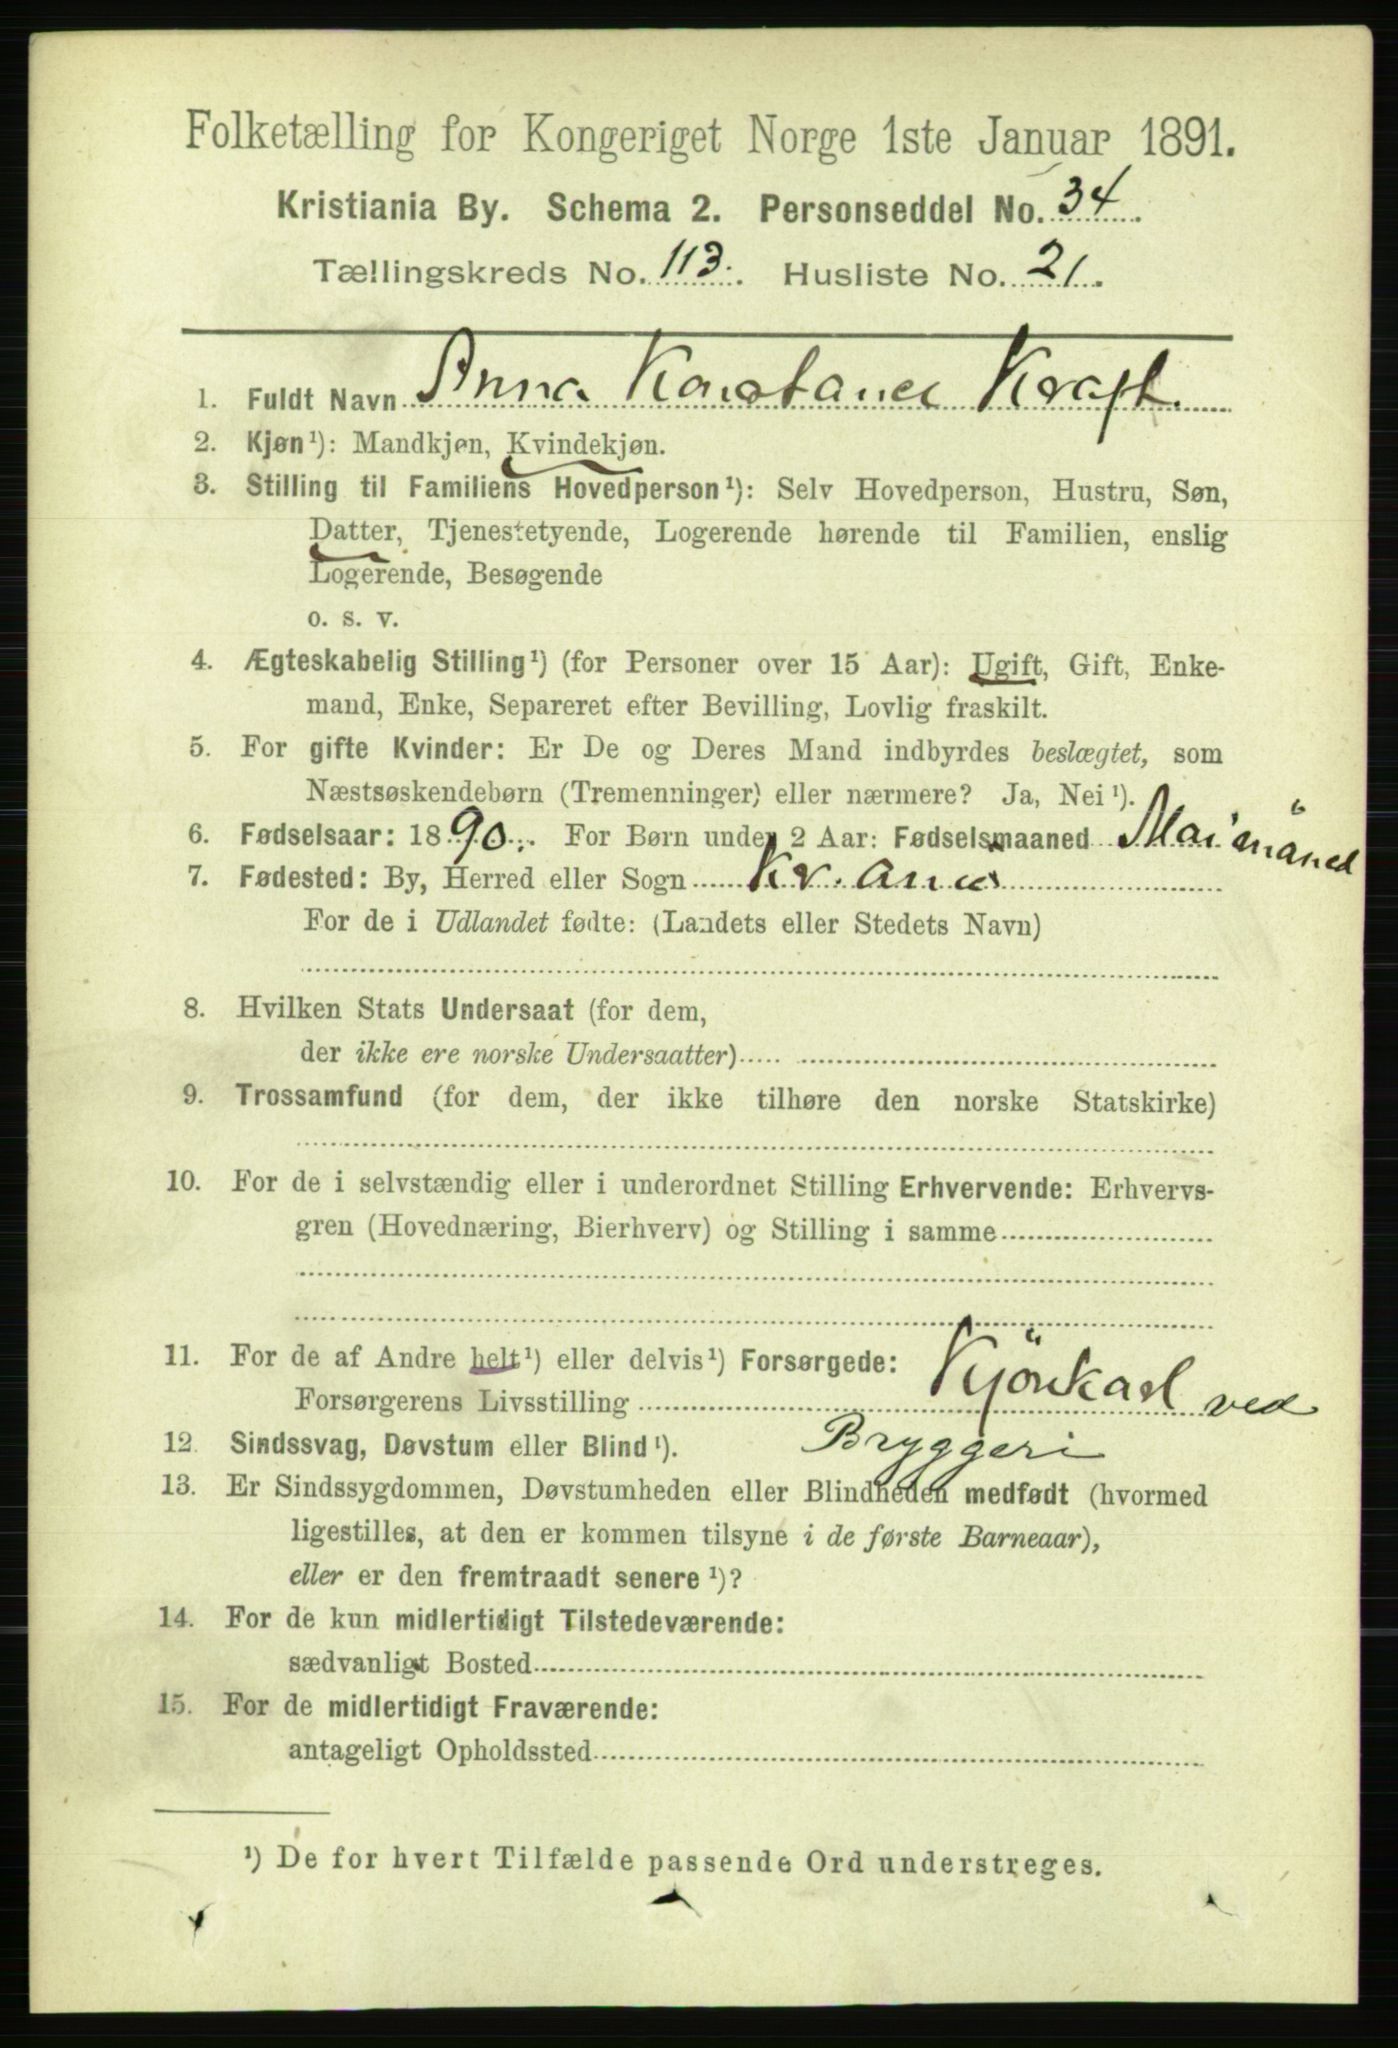 Folketælling for Kongeriget Norge 1ste Januar 1891.
Kristiania By. Schema 2. Personseddel No. 34.
Tællingskreds No. 113. Husliste No. 21.
1. Fuldt Navn Anna Konstance Kraft.
2. Kjøn¹): Mandkjøn, Kvindekjøn.
3. Stilling til Familiens Hovedperson¹): Selv Hovedperson, Hustru, Søn,
Datter, Tjenestetyende, Logerende hørende til Familien, enslig
Logerende, Besøgende
o. s. v.
4. Ægteskabelig Stilling¹) (for Personer over 15 Aar): Ugift, Gift, Enke-
mand, Enke, Separeret efter Bevilling, Lovlig fraskilt.
5. For gifte Kvinder: Er De og Deres Mand indbyrdes beslægtet, som
Næstsøskendebørn (Tremenninger) eller nærmere? Ja, Nei¹).
6. Fødselsaar: 1890. For Børn under 2 Aar: Fødselsmaaned Mai måned
7. Fødested: By, Herred eller Sogn Kr. ania
For de i Udlandet fødte: (Landets eller Stedets Navn)
8. Hvilken Stats Undersaat (for dem,
der ikke ere norske Undersaatter)
9. Trossamfund (for dem, der ikke tilhøre den norske Statskirke)
10. For de i selvstændig eller i underordnet Stilling Erhvervende: Erhvervs-
gren (Hovednæring, Bierhverv) og Stilling i samme
11. For de af Andre helt¹) eller delvis¹) Forsørgede:
Forsørgerens Livsstilling ved
12. Sindssvag, Døvstum eller Blind¹). Bryggeri
13. Er Sindssygdommen, Døvstumheden eller Blindheden medfødt (hvormed
ligestilles, at den er kommen tilsyne i de første Barneaar),
eller er den fremtraadt senere¹)?
14. For de kun midlertidigt Tilstedeværende:
sædvanligt Bosted
15. For de midlertidigt Fraværende:
antageligt Opholdssted
¹) De for hvert Tilfælde passende Ord understreges.